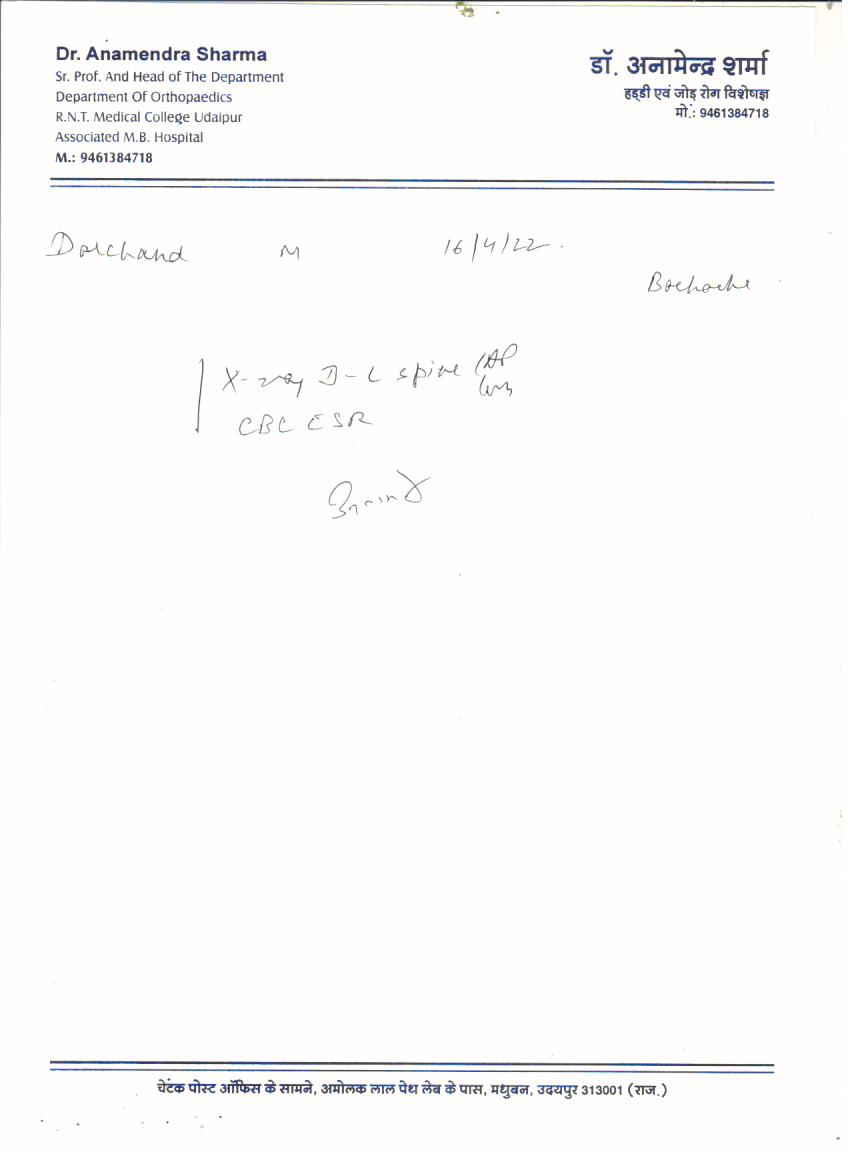 Dr. Anamendra Sharma
Sr. Prof. And Head of The Department
Department Of Orthopaedics
R.N.T. Medical College Udaipur
Associated M.B. Hospital
M.: 9461384718
डॉ. अनामेन्द्र शर्मा
हड्डी एवं जोड़ रोग विशेषज्ञ
मो.: 9461384718
Dalchand M 16/4/22
Backache
X-ray D-L spine AP
CBC ESR
चेटक पोस्ट ऑफिस के सामने, अमोलक लाल पेथ लेब के पास, मधुबन, उदयपुर 313001 (राज.)